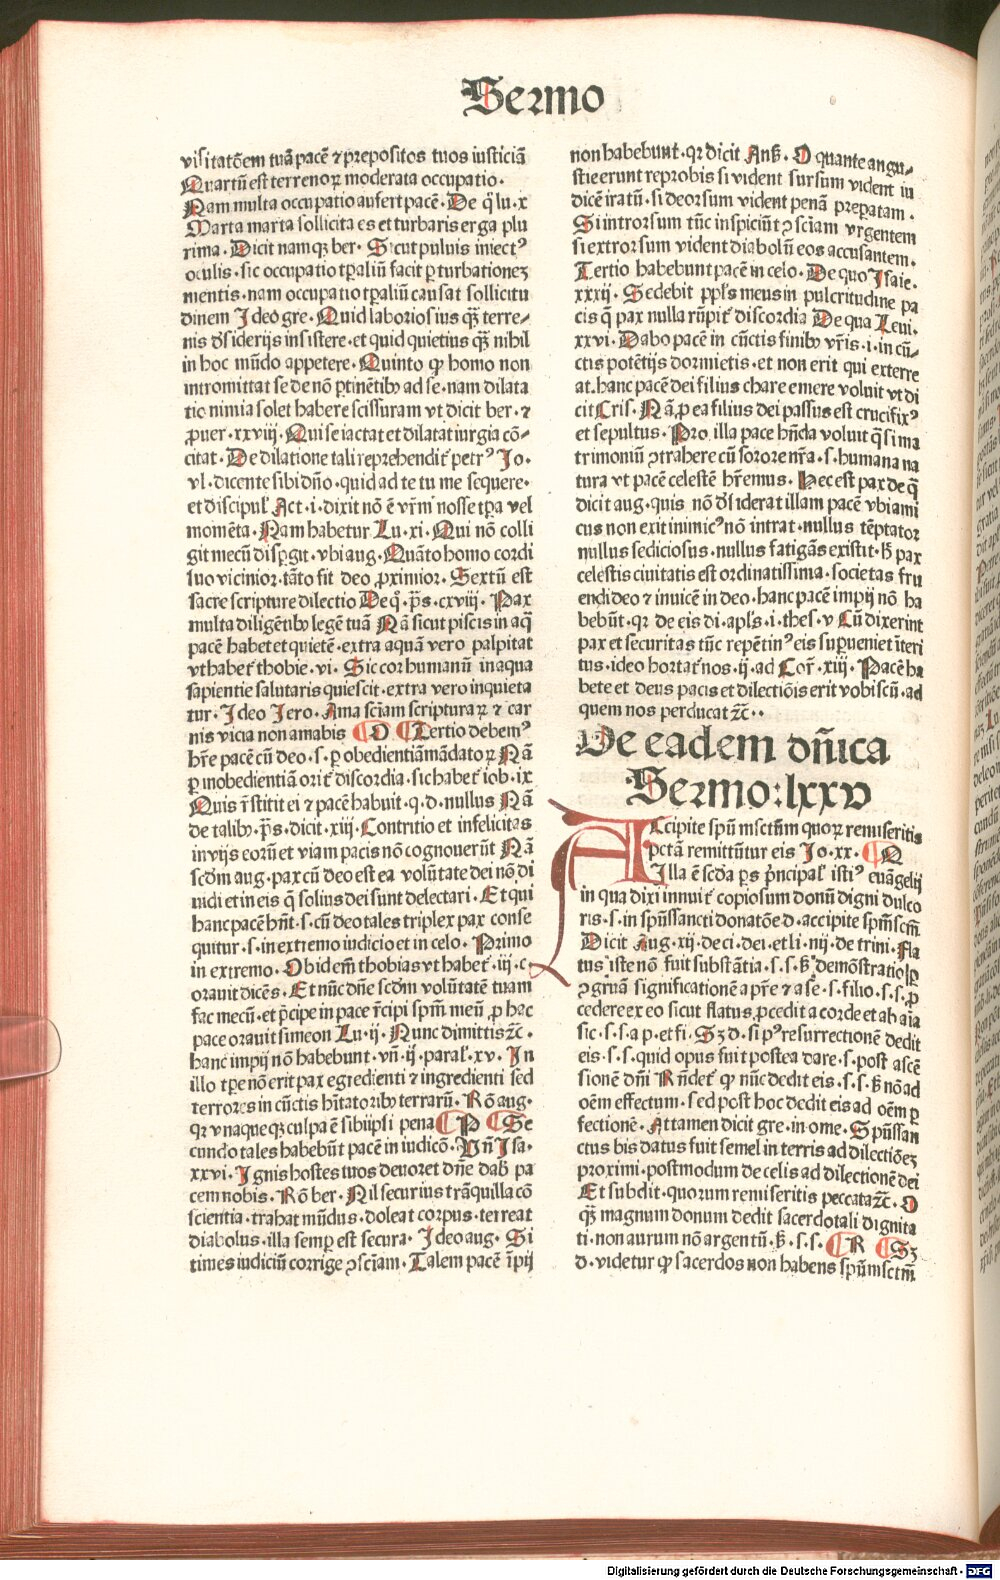 Sermo
visitatōem tuā pacē ⁊ prepositos tuos iusticiā
Quartū est terrenoꝝ moderata occupatio·
Nam multa occupatio aufert pacē· De q̄ lu·x
Marta marta sollicita es et turbaris erga plu
rima· Dicit namqꝫ ber· Sicut puluis iniectꝰ
oculis· sic occupatio tꝑaliū facit ꝑturbationeꝫ
mentis· nam occupatio tꝑaliū causat sollicitu
dinem Ideo gre· Quid laboriosius qꝫ̄ terre⸗
nis dʼsiderijs insistere· et quid quietius qꝫ̄ nihil
in hoc mūdo appetere· Quinto ꝙ homo non
intromittat se de nō ꝑtinētibꝰ ad se· nam dilata
tio nimia solet habere scissuram vt dicit ber· ⁊
ꝓuer· xxviij· Qui se iactat et dilatat iurgia cō⸗
citat· De dilatione tali reprehendit̄ petrꝰ Io·
vl· dicente sibi dn̄o· quid ad te tu me sequere·
et discipul̓ Act· i· dixit nō ē vr̄m nosse tꝑa vel
momēta· Nam habetur Lu· xi· Qui nō colli
git mecū disꝑgit· vbi aug· Quāto homo cordi
suo vicinior· tāto fit deo ꝓximior· Sextū est
sacre scripture dilectio De q̄· p̄s· cxviij· Pax
multa diligētibꝰ legē tuā Nā sicut piscis in aq̄
pacē habet et quietē· extra aquā vero palpitat
vt habet̄ thobie· vi· Sic cor humanū in aqua
sapientie salutaris quiescit· extra vero inquieta
tur· Ideo Jero· Ama sciam scripturaꝝ ⁊ car
nis vicia non amabis O Tertio debemꝰ
hr̄e pacē cū deo· s· ꝑ obedientiā mādatoꝝ Nā
ꝑ inobedientiā orit̄ discordia· sic habet̄ iob· ix
Quis r̄stitit ei ⁊ pacē habuit· q· d· nullus Nā
de talibꝰ· p̄s· dicit· xiij· Contritio et infelicitas
in vijs eorū et viam pacis nō cognouerūt Nā
scd̄m aug· pax cū deo est ea volūtate dei nō di
uidi et in eis q̄ solius dei sunt delectari· Et qui
hanc pacē hn̄t· s· cū deo tales triplex pax conse
quitur· s· in extremo iudicio et in celo· Primo
in extremo· Ob idem̄ thobias vt habet̄· iij· c·
orauit dicēs· Et nūc dn̄e scd̄m volūtatē tuam
fac mecū· et p̄cipe in pace r̄cipi spm̄ meū ꝓ hac
pace orauit simeon Lu· ij· Nunc dimittis ⁊c̄·
hanc impij nō habebunt· vn̄· ij· paral̓· xv· In
illo tꝑe nō erit pax egredienti ⁊ ingredienti sed
terrores in cūctis hītatoribꝰ terrarū· Rō aug·
qꝛ vnaqueqꝫ culpa ē sibiipsi pena P Se
cundo tales habebūt pacē in iudicō· Vn̄ Isa·
xxvi· Ignis hostes tuos deuoret dn̄e dab̓ pa
cem nobis· Rō ber· Nil securius trāquilla cō
scientia· trahat mūdus· doleat corpus· terreat
diabolus· illa semꝑ est secura· Ideo aug· Si
times iudiciū corrige ꝯsciam̄· Talem pacē īpij
non habebunt· qꝛ dicit Ans̄· O quante angu⸗
stie erunt reprobis si vident sursum vident iu
dicē iratū· si deorsum vident penā preparatam·
Si introrsum tūc inspiciūt ꝯsciam vrgentem
si extrorsum vident diabolū eos accusantem·
Tertio habebunt pacē in celo· De quo Isaie·
xxxij· Sedebit ppl̄s meus in pulcritudine pa
cis q̄ pax nulla rūpit̄ discordia De qua Leui·
xxvi· Dabo pacē in cūctis finibꝰ vr̄is· i· in cū⸗
ctis potētijs dormietis· et non erit qui exterre
at· hanc pacē dei filius chare emere voluit vt di
cit Cris· Nā ꝓ ea filius dei passus est crucifixꝰ
et sepultus· Pro illa pace hn̄da voluit q̄si ma
trimoniū ꝯtrahere cū sorore nr̄a· s· humana na
tura vt pacē celestē hr̄emus· Hec est pax de q̄
dicit aug· quis nō dʼsiderat illam pacē vbi ami
cus non exit inimicꝰ nō intrat· nullus tēptator
nullus sediciosus· nullus fatigās existit· h̓ pax
celestis ciuitatis est ordinatissima· societas fru
endi deo ⁊ inuicē in deo· hanc pacē impij nō ha
bebūt· qꝛ de eis di· apl̄s· i· thes· v Cū dixerint
pax et securitas tūc repētinꝰ eis suꝑueniet īteri
tus· ideo hortat̄ nos· ij· ad Cor̄· xiij· Pacē ha
bete et deus pacis et dilectiōis erit vobiscū· ad
quem nos perducat ⁊c̄··
De eadem dn̄ica
Sermo: lxxv
Accipite spm̄ msctm̄ quoꝝ remiseritis
pctā remittūtur eis Jo· xx· Q
Illa ē scd̄a ꝑs p̄ncipal̓ istiꝰ euāgelij
in qua dixi innuit̄ copiosum donū digni dulco
ris· s· in spūssancti donatōe d· accipite spm̄scm̄
Dicit Aug· xij· de ci· dei· et li· iiij· de trini· Fla
tus iste nō fuit substātia· s· s· s̄ demōstratio ꝑ
ꝯgruā significationē a pr̄e ⁊ a se· s· filio· s· s· ꝓ
cedere ex eo sicut flatus ꝓcedit a corde et ab aīa
sic· s· s· a p· et fi· Sꝫ d· si pꝰ resurrectionē dedit
eis· s· s· quid opus fuit postea dare· s· post ascē
sionē dn̄i Rn̄det̄ ꝙ nūc dedit eis· s· s· s̄ nō ad
oēm effectum· sed post hoc dedit eis ad oēm ꝑ
fectionē· Attamen dicit gre· in ome· Spūssan
ctus bis datus fuit semel in terris ad dilectiōeꝫ
proximi· postmodum de celis ad dilectionē dei
Et subdit· quorum remiseritis peccata ⁊c̄· O
qꝫ̄ magnum donum dedit sacerdotali dignita
ti· non aurum nō argentū· s̄· s· s· R Sꝫ
d· videtur ꝙ sacerdos non habens spūmsctm̄
Digitalisierung gefördert durch die Deutsche Forschungsgemeinschaft - DFG